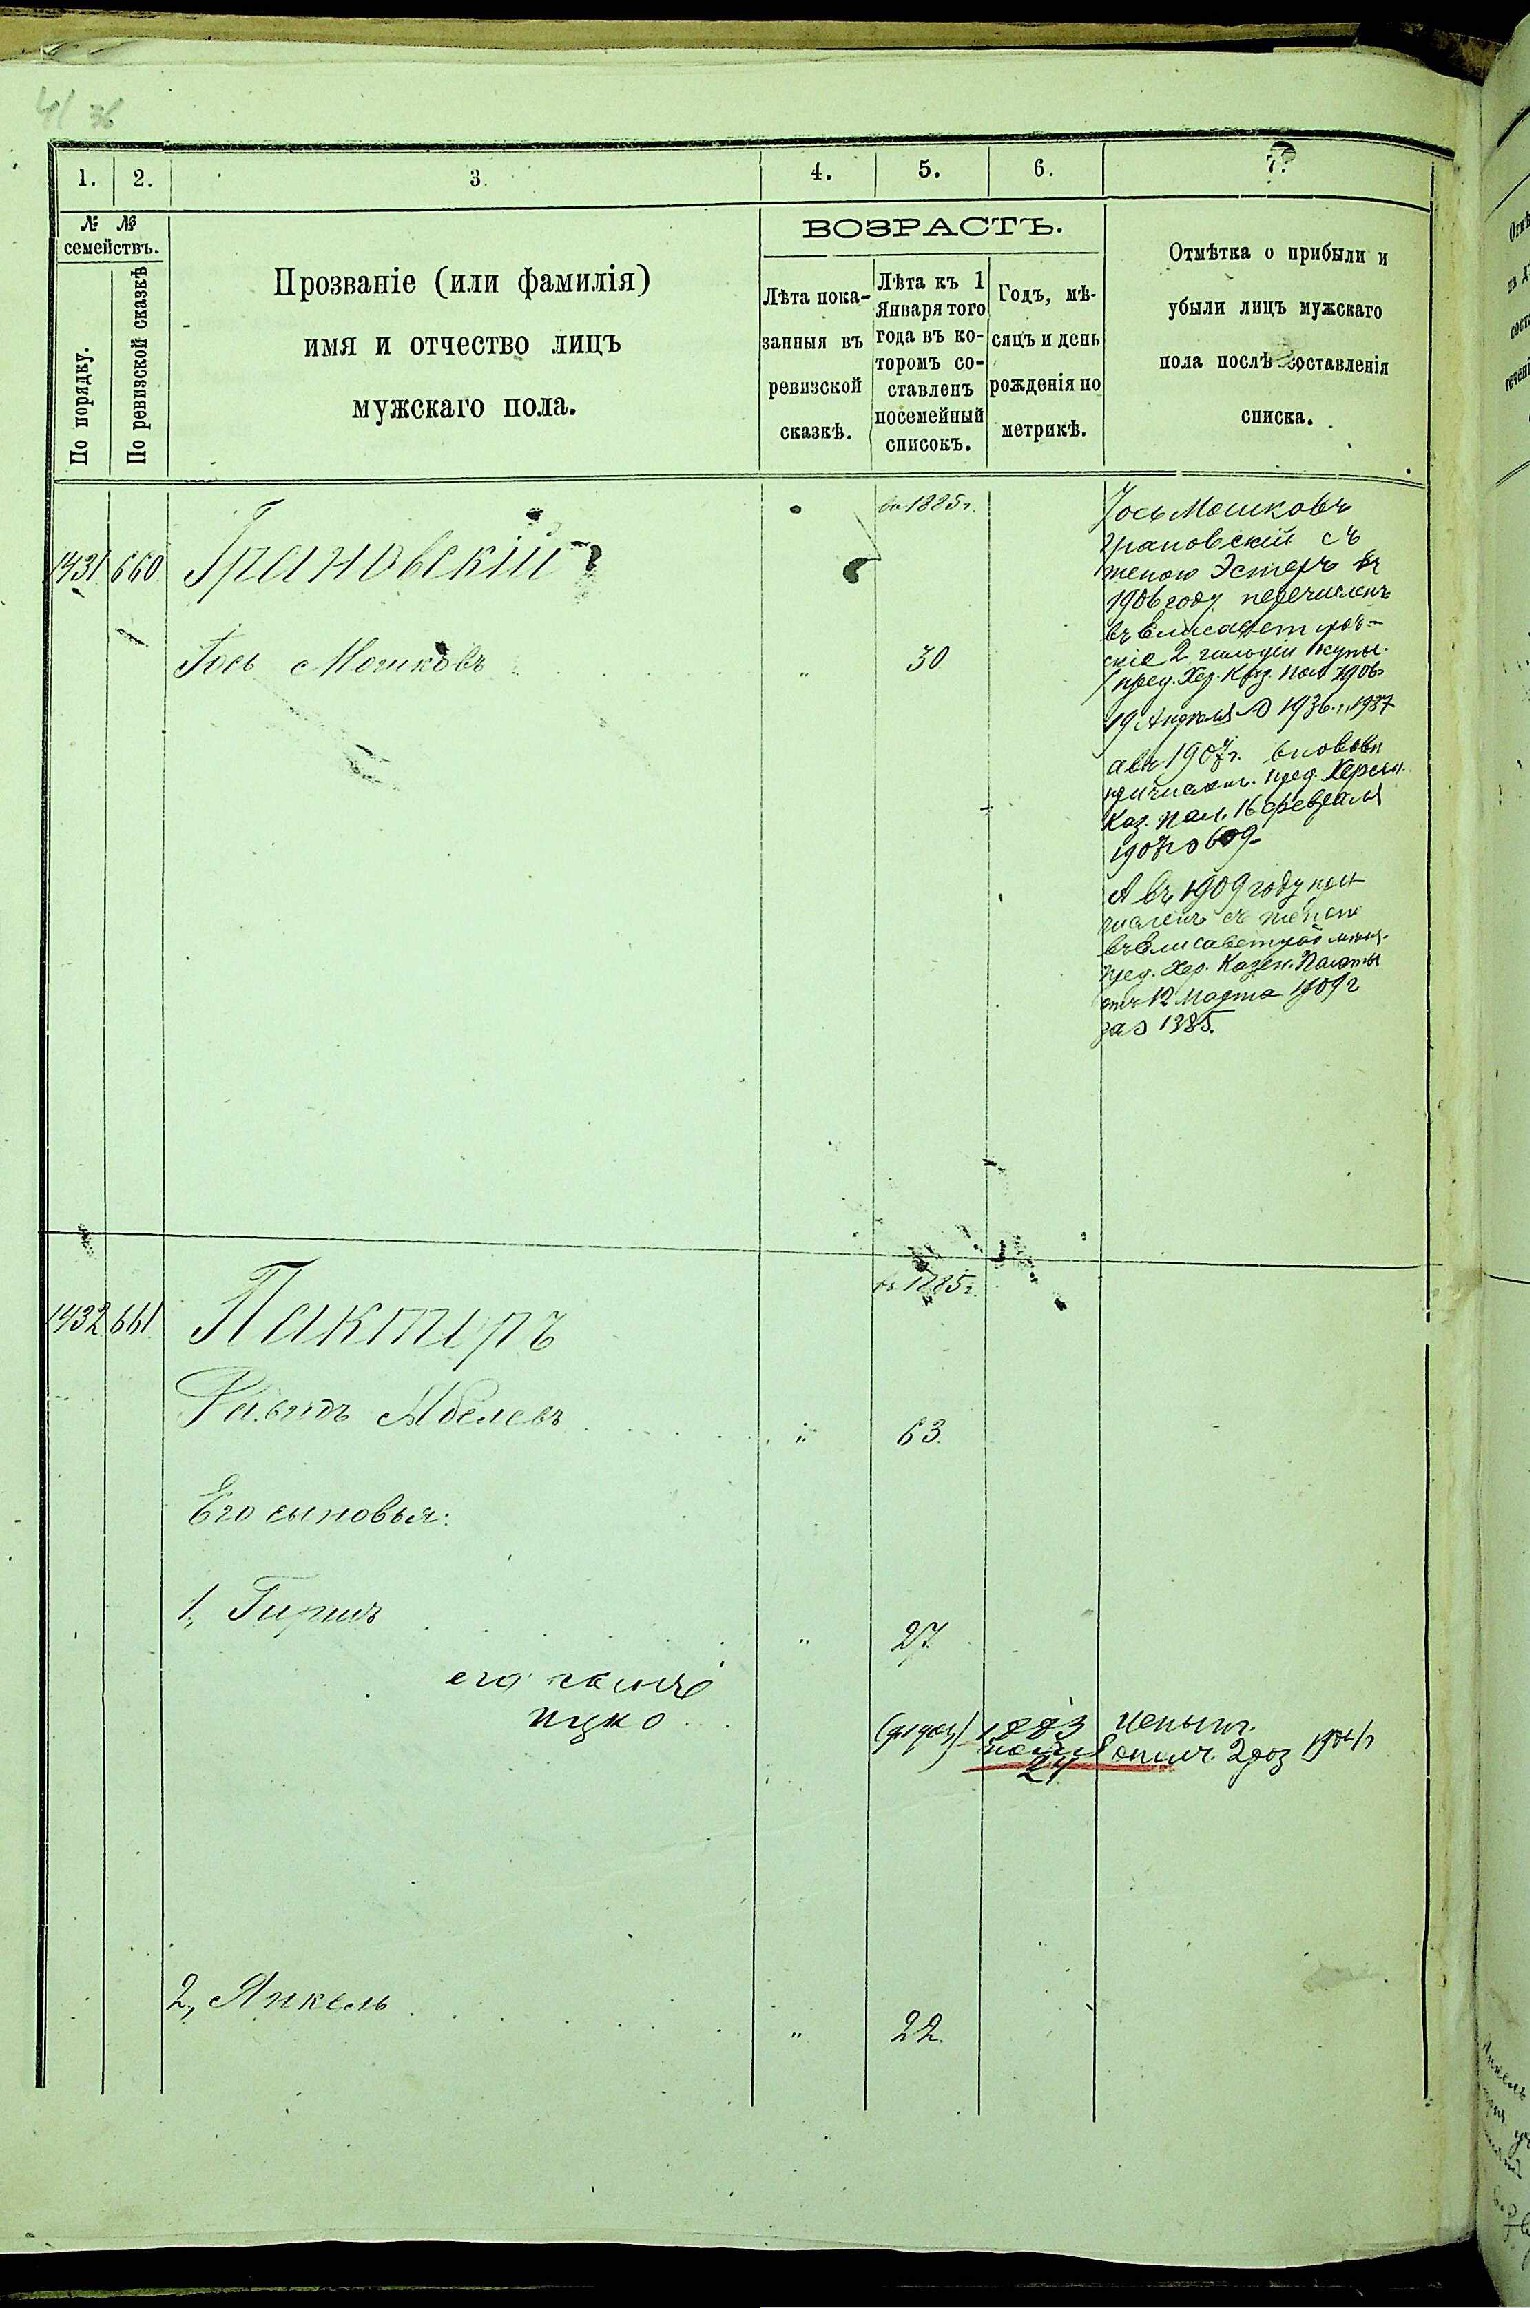 1. 2. 3. 4. 5. 6. 7.
№ № семействъ.
По порядку.
По ревизской сказкѣ
Прозваніе (или фамилія)
имя и отчество лицъ
мужскаго пола.
ВОЗРАСТЪ.
Лѣта пока-
занныя въ
ревизской
сказкѣ.
Лѣта къ 1
Января того
года въ ко-
торомъ со-
ставленъ
посемейный
списокъ.
Годъ, мѣ-
сяцъ и день
рожденія по
метрикѣ.
Отмѣтка о прибыли и
убыли лицъ мужскаго
пола послѣ составленія
списка.
въ 1885 г.
1431 660 Грановскій
Іось Мошковъ " 30
Іось Мошковъ
Грановскій съ
женою Эстеръ въ
1906 году перечисленъ
въ Елисаветград-
скіе 2 гильдіи купцы.
пред. Хер. Каз. Пал. 1906
19 Апреля № 1936 и 1937
а въ 1907 г. вновь
причислен. пред. Херсон.
Каз. Пал. 16 февраля
1907 № 609
А въ 1909 году при
численъ съ женою
въ Елисаветград
пред. Хер. Казен. Палаты
отъ 12 марта 1909 г
за № 1385.
въ 1885 г.
1432 661 Пактыръ
Абелевъ " 63.
Его сыновья:
1, Гиршъ " 27.
его сынъ
Ицко 1883 1904 г
24
2, Янкель " 22.